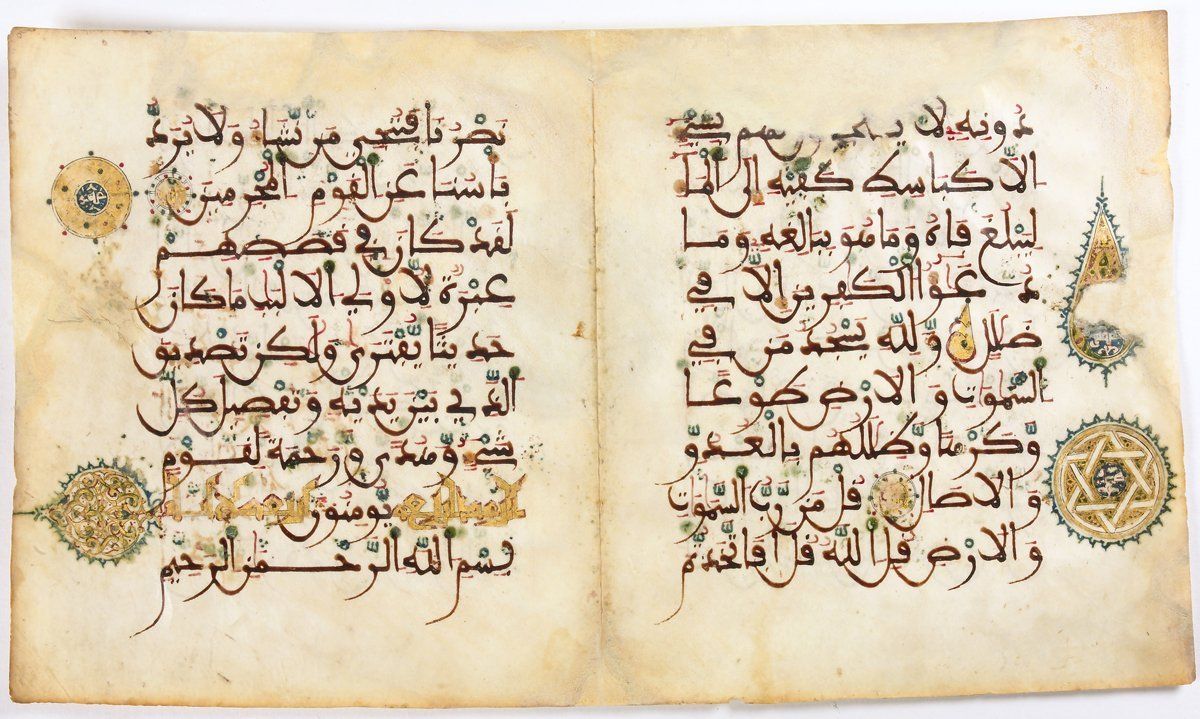 دونه لا لهم بشي
الا كبسط كفيه الى الما
ليبلغ فاه وما هو ببلغه وما
دعوا الكفرين الا في
ضلل ولله يسجد من في
السموت والارض طوعا
وكرها وظللهم بالغدو
والاصال قل من رب السموت
والارض قل الله قل افاتخذتم
نصرنا فننجي من نشا ولا يرد
باسنا عن القوم المجرمين
لقد كان في قصصهم
عبرة لاولي الالبب ما كان
حديثا يفترى ولكن تصديق
الذي بين يديه وتفصيل كل
شي وهدى ورحمة لقوم
يومنون
بسم الله الرحمن الرحيم